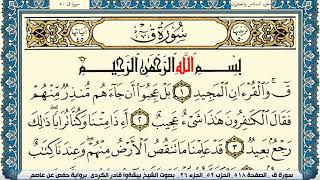 سُورَةُ قٓ
بِسْمِ اللَّهِ الرَّحْمَٰنِ الرَّحِيمِ
قٓ وَالْقُرْءَانِ الْمَجِيدِ ١ بَلْ عَجِبُوٓا۟ أَن جَآءَهُم مُّنذِرٌ مِّنْهُمْ
فَقَالَ الْكَٰفِرُونَ هَٰذَا شَىْءٌ عَجِيبٌ ٢ أَءِذَا مِتْنَا وَكُنَّا تُرَابًا ذَٰلِكَ
رَجْعٌۢ بَعِيدٌ ٣ قَدْ عَلِمْنَا مَا تَنقُصُ الْأَرْضُ مِنْهُمْ وَعِندَنَا كِتَٰبٌ
سورة ق - الصفحة ٥١٨ الحزب ٥٢ الجزء ٢٦ - بصوت الشيخ بيشةوا قادر الكردي - برواية حفص عن عاصم